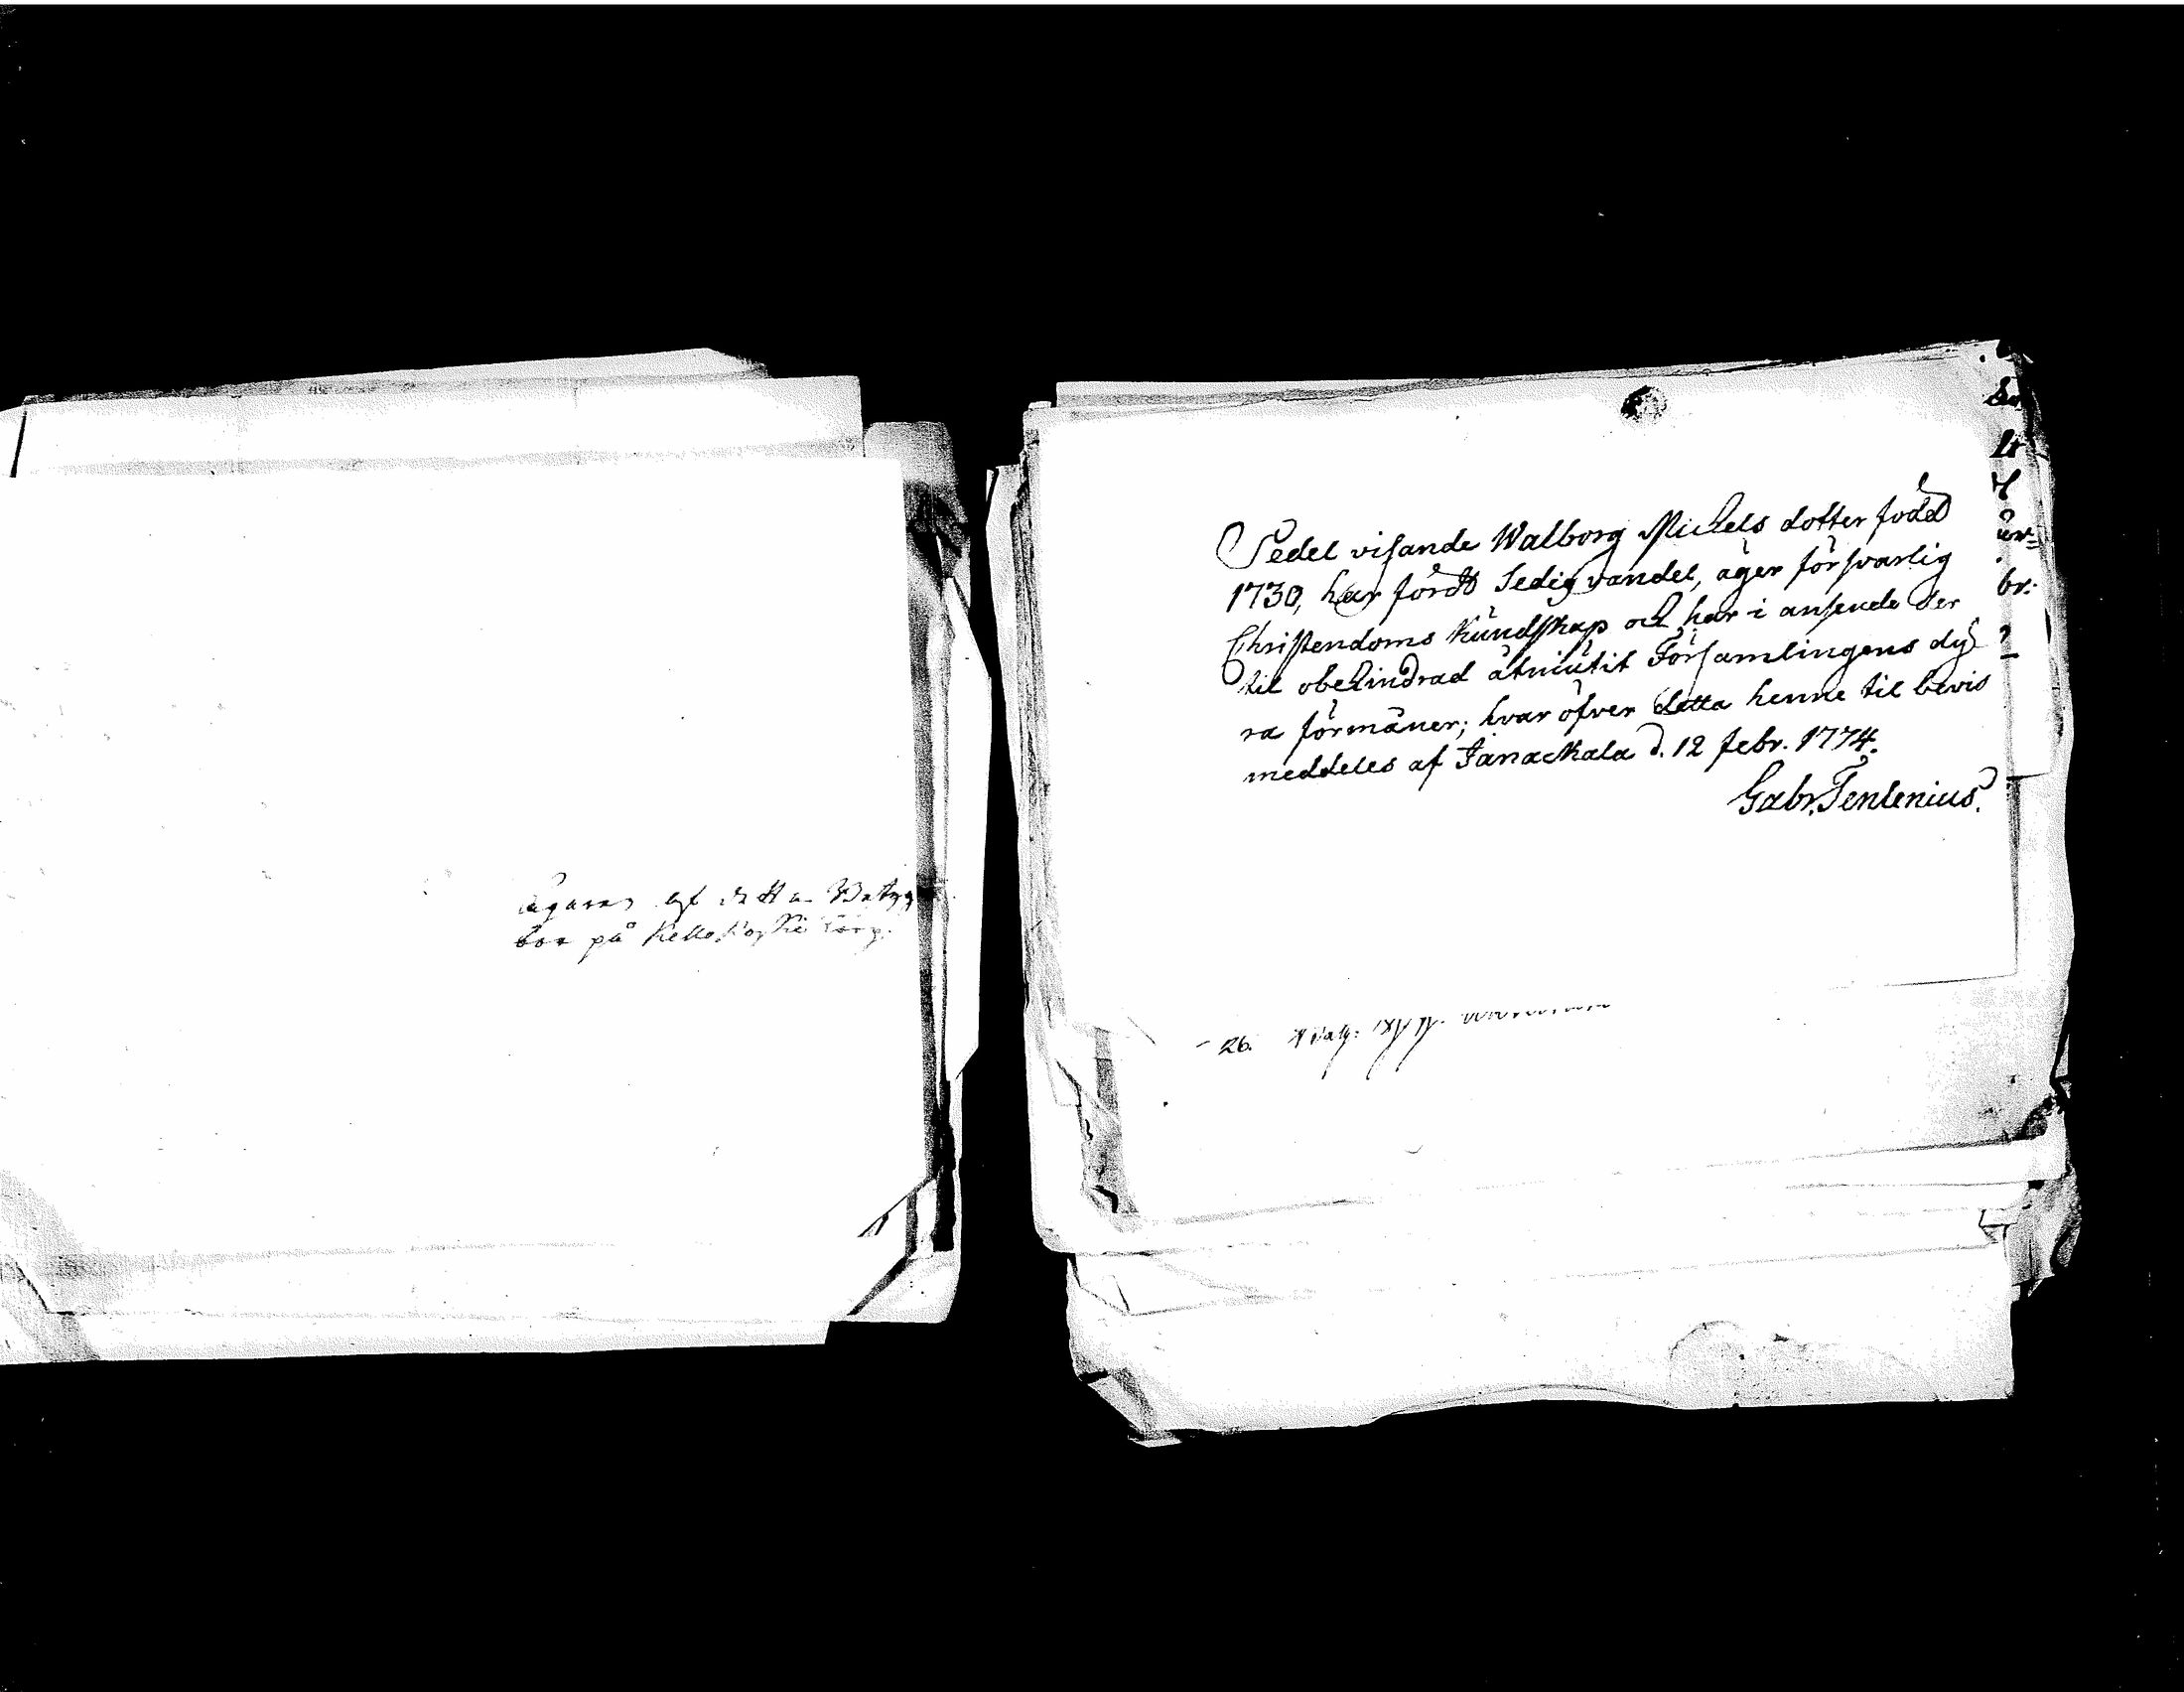 ägaren af detta Betyg
bor på Kellokoski Torp.
Sedel visande Walborg Michels dotter född
1730, har fördt Sedig vandel, äger försvarlig
Christendoms Kundskap och har i anseende der
til obehindrad åtniutit Församlingens dy
ra förmåner; hvar öfver detta henne til bevis
meddeles af Janackala d. 12 febr. 1774.
Gabr. Tenlenius.
br:
26.